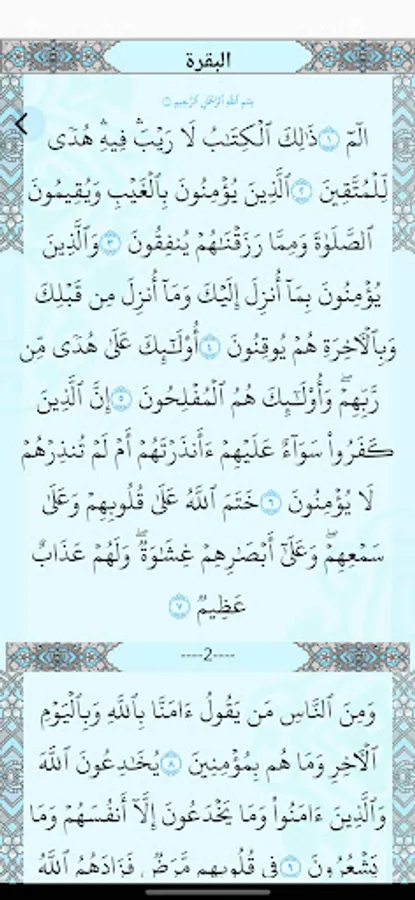 البقرة
بِسْمِ ٱللَّهِ ٱلرَّحْمَٰنِ ٱلرَّحِيمِ ۝١
الٓمٓ ۝١ ذَٰلِكَ ٱلْكِتَٰبُ لَا رَيْبَۛ فِيهِۛ هُدًى
لِّلْمُتَّقِينَ ۝٢ ٱلَّذِينَ يُؤْمِنُونَ بِٱلْغَيْبِ وَيُقِيمُونَ
ٱلصَّلَوٰةَ وَمِمَّا رَزَقْنَٰهُمْ يُنفِقُونَ ۝٣ وَٱلَّذِينَ
يُؤْمِنُونَ بِمَآ أُنزِلَ إِلَيْكَ وَمَآ أُنزِلَ مِن قَبْلِكَ
وَبِٱلْأَخِرَةِ هُمْ يُوقِنُونَ ۝٤ أُو۟لَٰٓئِكَ عَلَىٰ هُدًى مِّن
رَّبِّهِمْۖ وَأُو۟لَٰٓئِكَ هُمُ ٱلْمُفْلِحُونَ ۝٥ إِنَّ ٱلَّذِينَ
كَفَرُوا۟ سَوَآءٌ عَلَيْهِمْ ءَأَنذَرْتَهُمْ أَمْ لَمْ تُنذِرْهُمْ
لَا يُؤْمِنُونَ ۝٦ خَتَمَ ٱللَّهُ عَلَىٰ قُلُوبِهِمْ وَعَلَىٰ
سَمْعِهِمْۖ وَعَلَىٰٓ أَبْصَٰرِهِمْ غِشَٰوَةٌۖ وَلَهُمْ عَذَابٌ
عَظِيمٌ ۝٧
----2----
وَمِنَ ٱلنَّاسِ مَن يَقُولُ ءَامَنَّا بِٱللَّهِ وَبِٱلْيَوْمِ
ٱلْأَخِرِ وَمَا هُم بِمُؤْمِنِينَ ۝٨ يُخَٰدِعُونَ ٱللَّهَ
وَٱلَّذِينَ ءَامَنُوا۟ وَمَا يَخْدَعُونَ إِلَّآ أَنفُسَهُمْ وَمَا
يَشْعُرُونَ ۝٩ فِى قُلُوبِهِم مَّرَضٌ فَزَادَهُمُ ٱللَّهُ